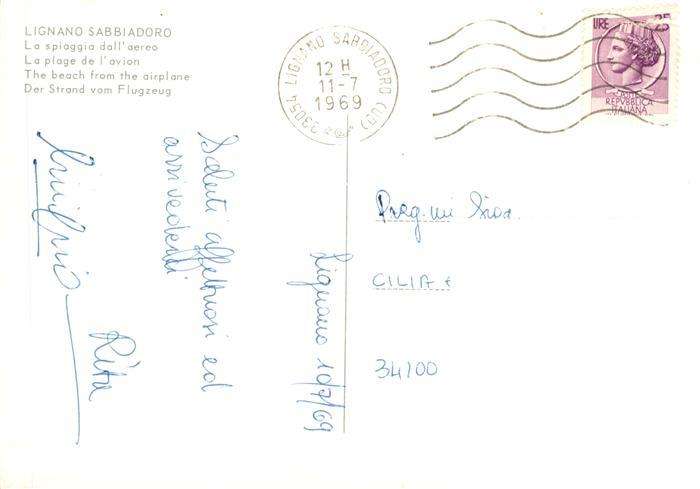 LIGNANO SABBIADORO
La spiaggia dall'aereo
La plage de l'avion
The beach from the airplane
Der Strand vom Flugzeug
33054 LIGNANO SABBIADORO (UD)
12 H
11-7
1969
LIRE 25
REPVBBLICA
ITALIANA
Lignano 10/7/69
Saluti affettuosi ed
arrivederci
Rita
Preg.mi
CILIA
34100